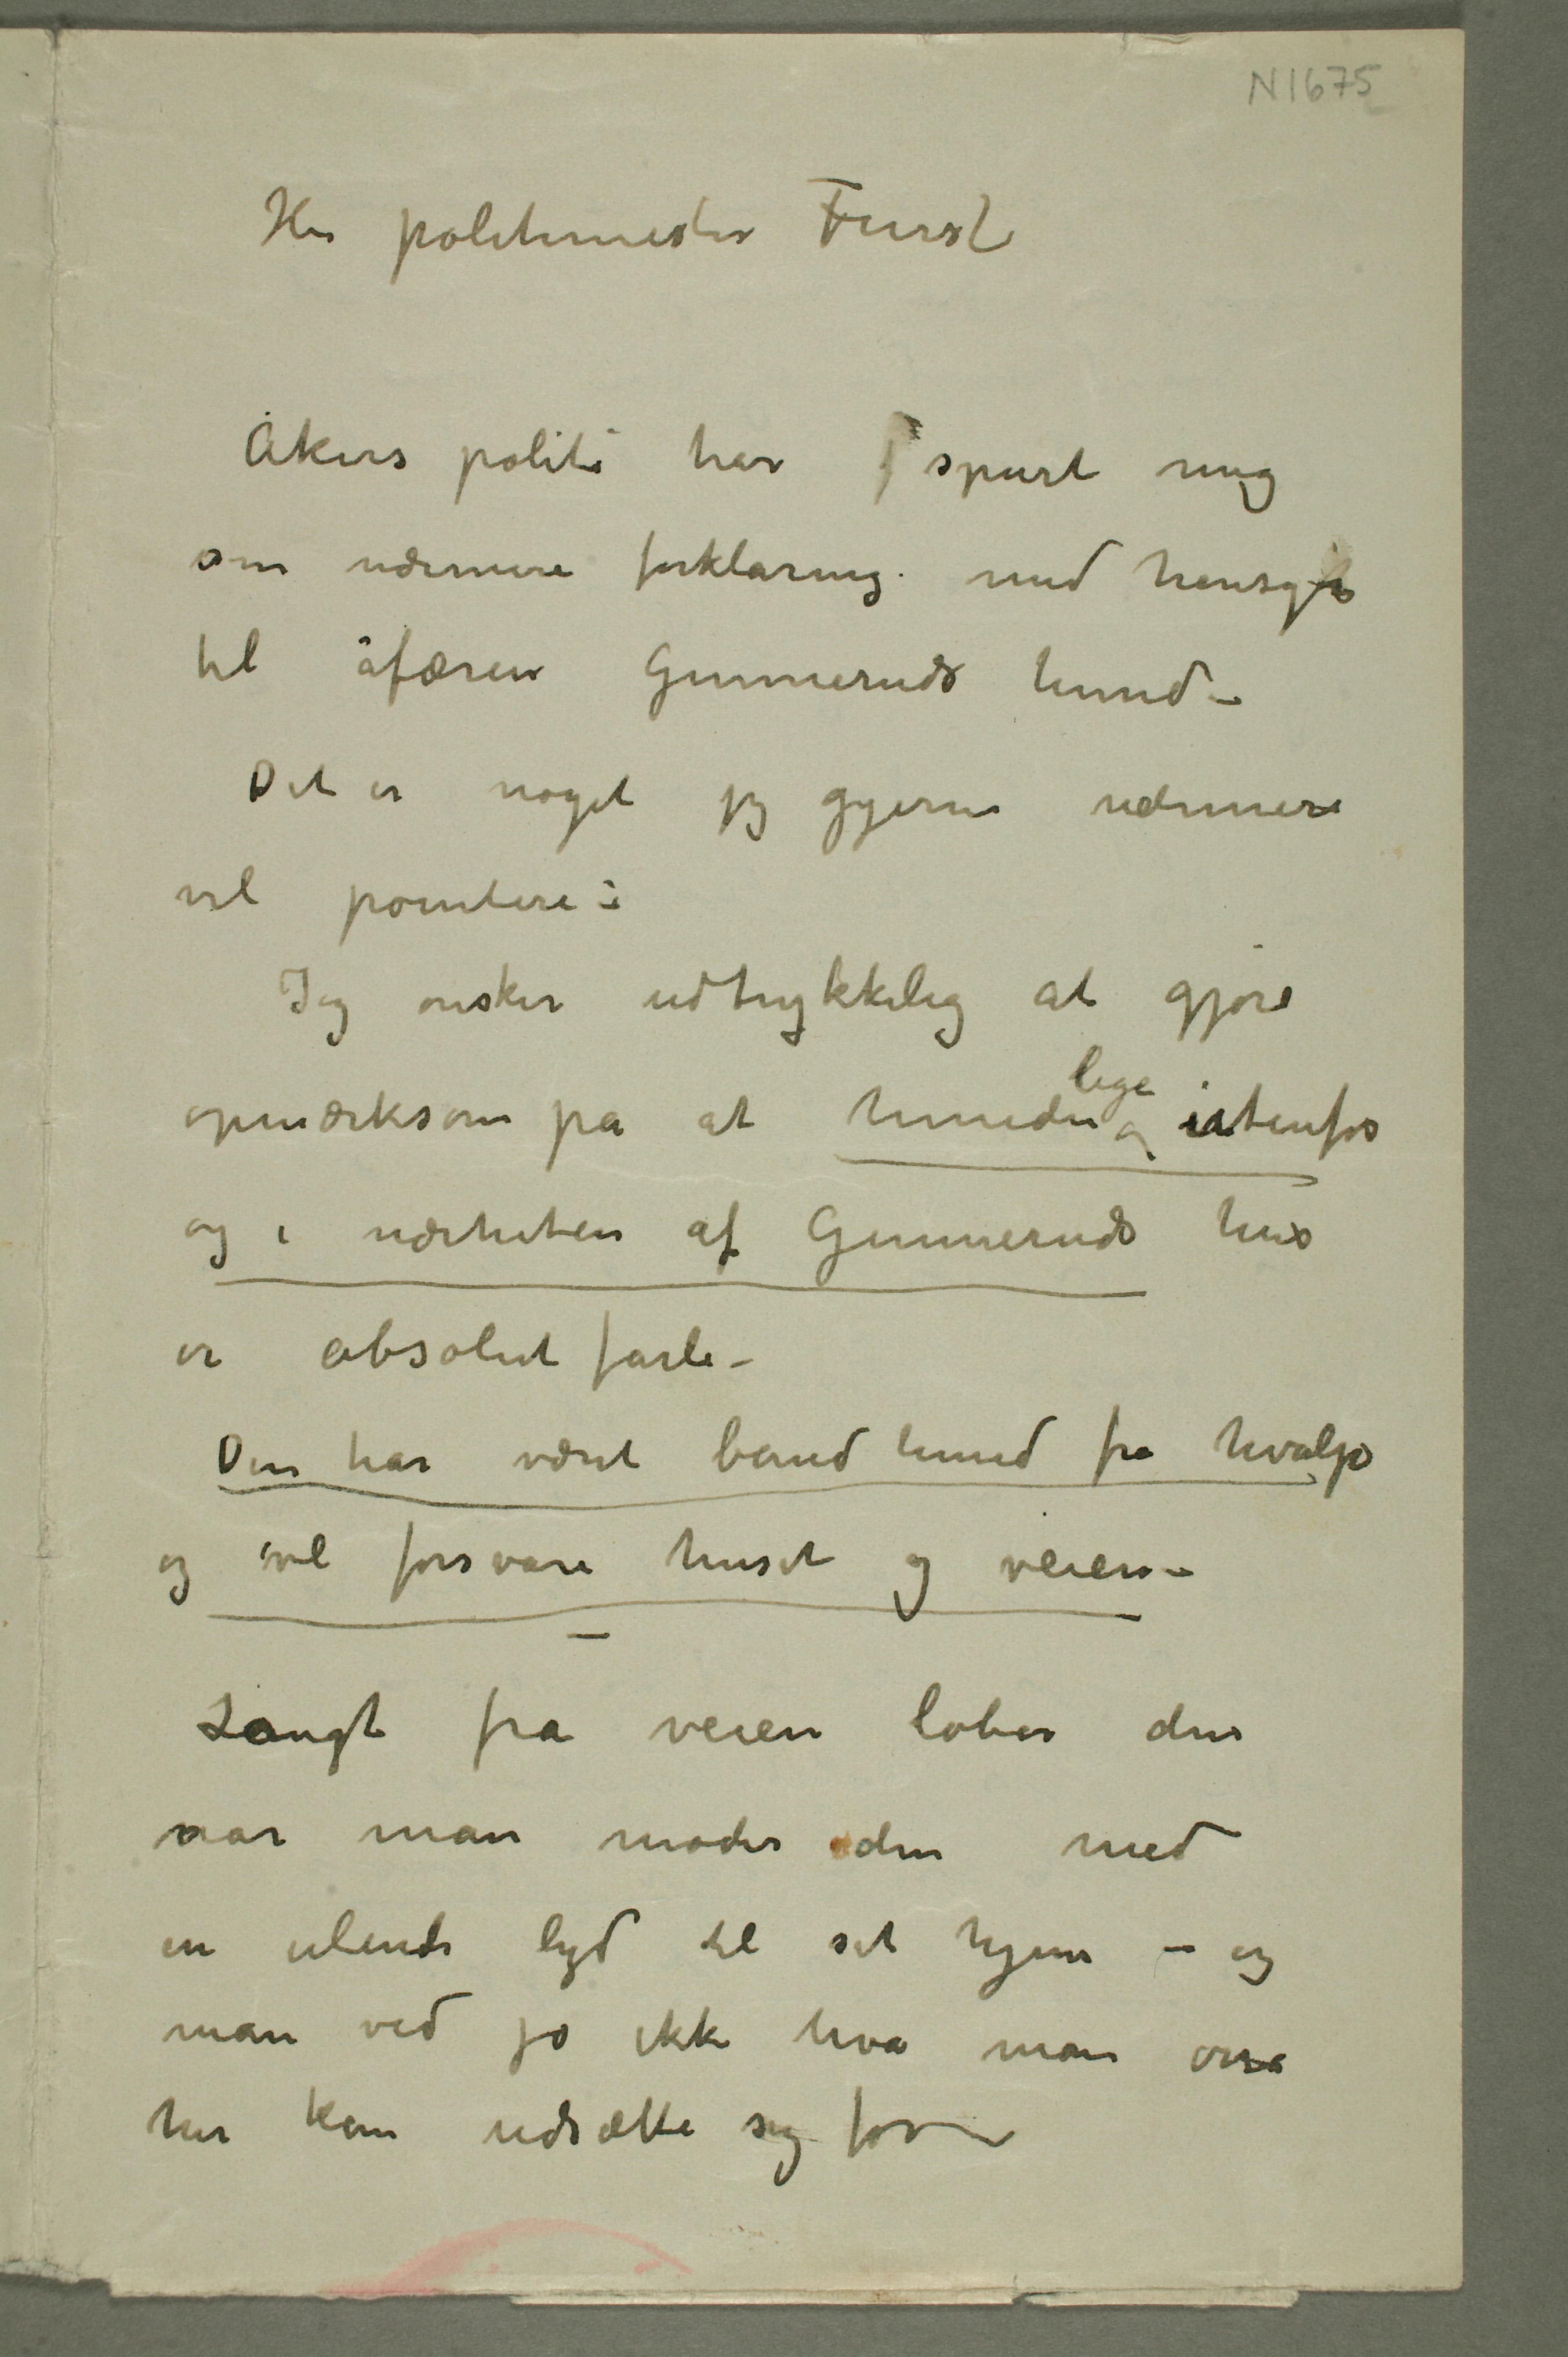 N 1675
Her politimester Furst
Åkers politi har spurt mig
om nærmere forklaring. med hensyn
til åfæren Gunneruds hund –
Det er noget jeg gjerne nærmere
vil pointere :
Jeg ønsker udtrykkelig at gjøre
opmærksom på at hunden lige utenfor
og i nærheten af Gunneruds hus
er absolut farli –
Den har været band hund fra hvalp
og vil forsvare huset og veien –
Langt fra veien løber den
naar man møder den med
en ulende lyd til sit hjem – og
man ved jo ikke hva man
her kan udsætte sig for –